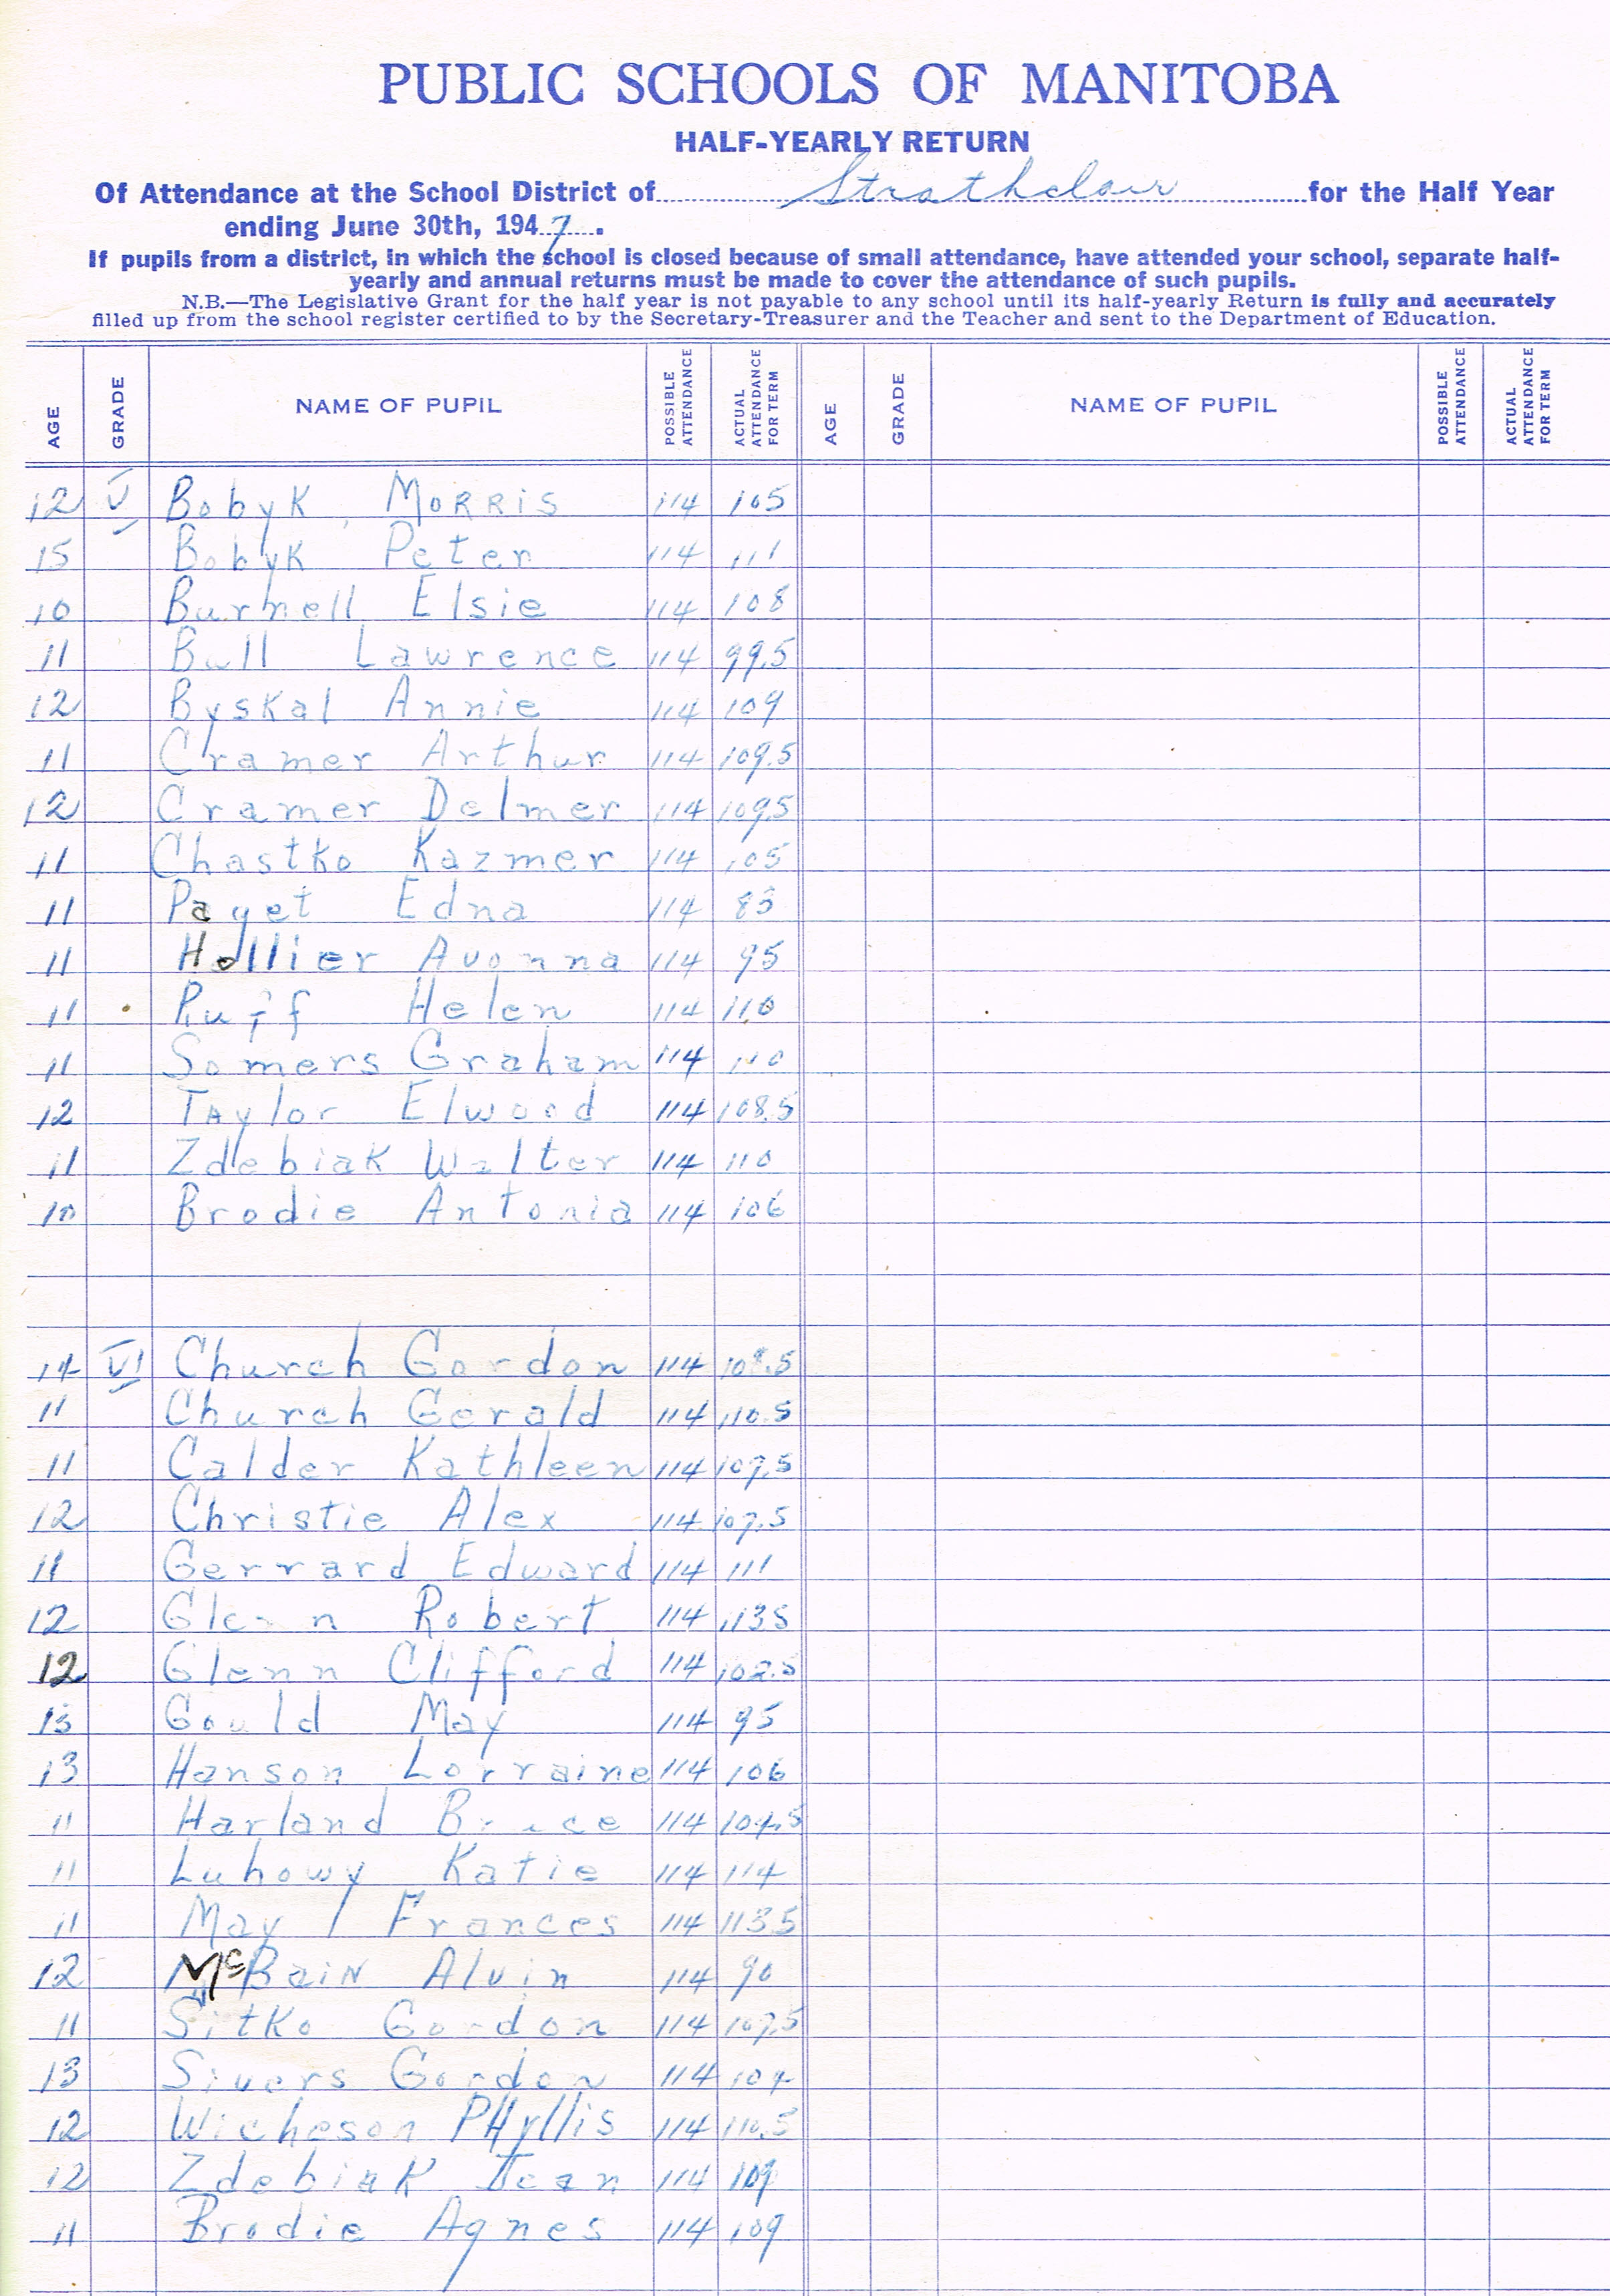 PUBLIC SCHOOLS OF MANITOBA
HALF-YEARLY RETURN
Of Attendance at the School District of Strathclair for the Half Year
ending June 30th, 1947.
If pupils from a district, in which the school is closed because of small attendance, have attended your school, separate half-
yearly and annual returns must be made to cover the attendance of such pupils.
N.B.—The Legislative Grant for the half year is not payable to any school until its half-yearly Return is fully and accurately
filled up from the school register certified to by the Secretary-Treasurer and the Teacher and sent to the Department of Education.
AGE GRADE NAME OF PUPIL POSSIBLE ATTENDANCE ACTUAL ATTENDANCE FOR TERM AGE GRADE NAME OF PUPIL POSSIBLE ATTENDANCE ACTUAL ATTENDANCE FOR TERM
12 V Bobyk, Morris 114 105
15 Bobyk Peter 114 111
10 Burnell Elsie 114 108
11 Bull Lawrence 114 99.5
12 Byskal Annie 114 109
11 Cramer Arthur 114 109.5
12 Cramer Delmer 114 109.5
11 Chastko Kazmer 114 105
11 Paget Edna 114 83
11 Hollier Avonna 114 95
11 Ruff Helen 114 110
11 Somers Graham 114 110
12 Taylor Elwood 114 108.5
11 Zdebiak Walter 114 110
10 Brodie Antonia 114 106
14 VI Church Gordon 114
11 Church Gerald 114 110.5
11 Calder Kathleen 114 107.5
12 Christie Alex 114 107.5
11 Gerrard Edward 114 111
12 Glenn Robert 114 113.5
12 Glenn Clifford 114 102.5
13 Gould May 114 95
13 Hanson Lorraine 114 106
11 Harland Bruce 114 104.5
11 Luhowy Katie 114 114
11 May Frances 114 113.5
12 McBain Alvin 114 90
11 Sitko Gordon 114 107.5
13 Sivers Gordon 114 104
12 Wicheson Phyllis 114 110.5
12 Zdebiak Jean 114 109
11 Brodie Agnes 114 109